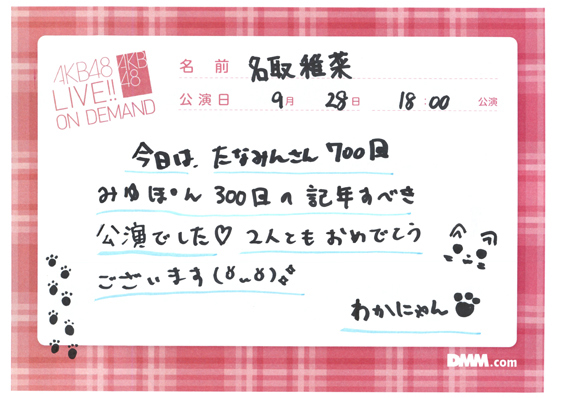 AKB48
LIVE!!
ON DEMAND
AKB
48
名前 名取稚菜
公演日 9月 28日 18:00 公演
今日は、たなみんさん700回
みゆぽん300回の記年すべき
公演でした♡ 2人ともおめでとう
ございます(ȣ˽ȣ)✧
わかにゃん
DMM.com